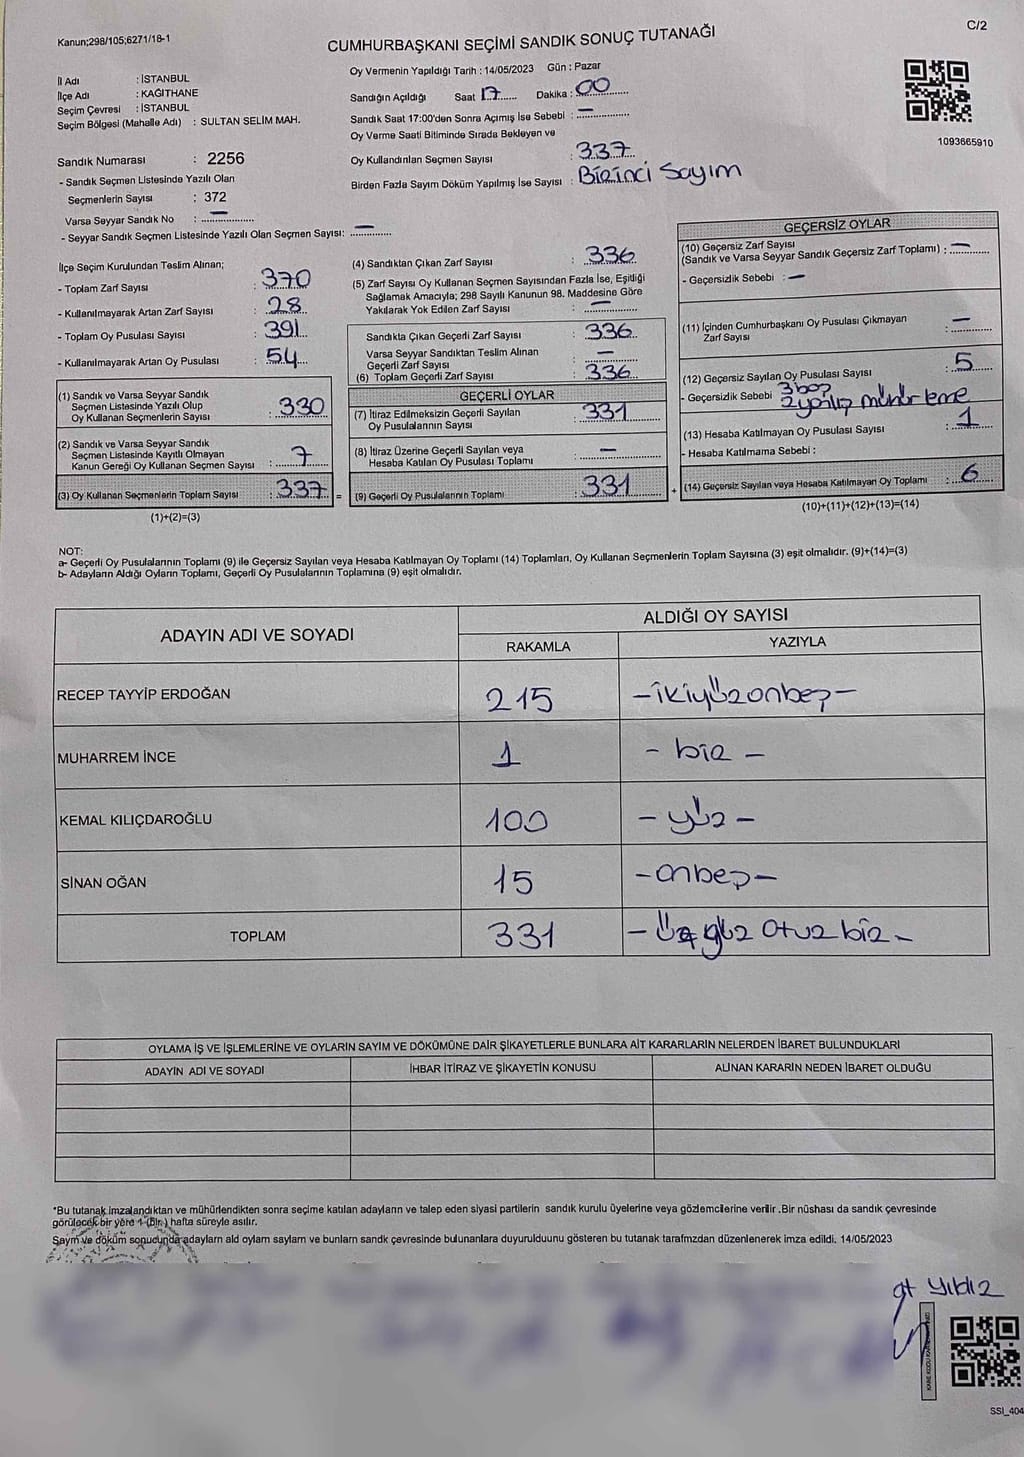 Kanun;298/105;6271/18-1
C/2
CUMHURBAŞKANI SEÇİMİ SANDIK SONUÇ TUTANAĞI
İl Adı : İSTANBUL
İlçe Adı : KAĞITHANE
Seçim Çevresi : İSTANBUL
Seçim Bölgesi (Mahalle Adı) : SULTAN SELİM MAH.
Oy Vermenin Yapıldığı Tarih : 14/05/2023 Gün : Pazar
Sandığın Açıldığı Saat 17 Dakika : 00
Sandık Saat 17:00'den Sonra Açımış İse Sebebi : —
Oy Verme Saati Bitiminde Sırada Bekleyen ve
Oy Kullandırılan Seçmen Sayısı : 337
Birden Fazla Sayım Döküm Yapılmış İse Sayısı : Birinci Sayım
1093665910
Sandık Numarası : 2256
- Sandık Seçmen Listesinde Yazılı Olan
Seçmenlerin Sayısı : 372
Varsa Seyyar Sandık No : —
- Seyyar Sandık Seçmen Listesinde Yazılı Olan Seçmen Sayısı: —
İlçe Seçim Kurulundan Teslim Alınan;
- Toplam Zarf Sayısı : 370
- Kullanılmayarak Artan Zarf Sayısı : 28
- Toplam Oy Pusulası Sayısı : 391
- Kullanılmayarak Artan Oy Pusulası : 54
(1) Sandık ve Varsa Seyyar Sandık
Seçmen Listesinde Yazılı Olup
Oy Kullanan Seçmenlerin Sayısı : 330
(2) Sandık ve Varsa Seyyar Sandık
Seçmen Listesinde Kayıtlı Olmayan
Kanun Gereği Oy Kullanan Seçmen Sayısı : 7
(3) Oy Kullanan Seçmenlerin Toplam Sayısı : 337 =
(1)+(2)=(3)
(4) Sandıktan Çıkan Zarf Sayısı : 336
(5) Zarf Sayısı Oy Kullanan Seçmen Sayısından Fazla İse, Eşitliği
Sağlamak Amacıyla; 298 Sayılı Kanunun 98. Maddesine Göre
Yakılarak Yok Edilen Zarf Sayısı : —
Sandıkta Çıkan Geçerli Zarf Sayısı : 336
Varsa Seyyar Sandıktan Teslim Alınan
Geçerli Zarf Sayısı : —
(6) Toplam Geçerli Zarf Sayısı : 336
GEÇERLİ OYLAR
(7) İtiraz Edilmeksizin Geçerli Sayılan
Oy Pusulalarının Sayısı : 331
(8) İtiraz Üzerine Geçerli Sayılan veya
Hesaba Katılan Oy Pusulası Toplamı : —
(9) Geçerli Oy Pusulalarının Toplamı : 331 +
GEÇERSİZ OYLAR
(10) Geçersiz Zarf Sayısı
(Sandık ve Varsa Seyyar Sandık Geçersiz Zarf Toplamı) : —
- Geçersizlik Sebebi : —
(11) İçinden Cumhurbaşkanı Oy Pusulası Çıkmayan
Zarf Sayısı : —
(12) Geçersiz Sayılan Oy Pusulası Sayısı : 5
- Geçersizlik Sebebi 3 boş
2 yanlış mühürleme
(13) Hesaba Katılmayan Oy Pusulası Sayısı : 1
- Hesaba Katılmama Sebebi :
(14) Geçersiz Sayılan veya Hesaba Katılmayan Oy Toplamı : 6
(10)+(11)+(12)+(13)=(14)
NOT:
a- Geçerli Oy Pusulalarının Toplamı (9) ile Geçersiz Sayılan veya Hesaba Katılmayan Oy Toplamı (14) Toplamları, Oy Kullanan Seçmenlerin Toplam Sayısına (3) eşit olmalıdır. (9)+(14)=(3)
b- Adayların Aldığı Oyların Toplamı, Geçerli Oy Pusulalarının Toplamına (9) eşit olmalıdır.
ADAYIN ADI VE SOYADI
ALDIĞI OY SAYISI
RAKAMLA YAZIYLA
RECEP TAYYİP ERDOĞAN 215 - ikiyüzonbeş -
MUHARREM İNCE 1 - bir -
KEMAL KILIÇDAROĞLU 100 - yüz -
SİNAN OĞAN 15 - onbeş -
TOPLAM 331 - Üçyüz Otuz bir -
OYLAMA İŞ VE İŞLEMLERİNE VE OYLARIN SAYIM VE DÖKÜMÜNE DAİR ŞİKAYETLERLE BUNLARA AİT KARARLARIN NELERDEN İBARET BULUNDUKLARI
ADAYIN ADI VE SOYADI İHBAR İTİRAZ VE ŞİKAYETİN KONUSU ALINAN KARARIN NEDEN İBARET OLDUĞU
*Bu tutanak imzalandıktan ve mühürlendikten sonra seçime katılan adayların ve talep eden siyasi partilerin sandık kurulu üyelerine veya gözlemcilerine verilir.Bir nüshası da sandık çevresinde
görülecek bir yere 1 (Bir) hafta süreyle asılır.
Sayım ve döküm sonucunda adayların ald oylam sayların ve bunların sandk çevresinde bulunanlara duyurulduunu gösteren bu tutanak tarafmzdan düzenlenerek imza edildi. 14/05/2023
Yıldız
SSI_404